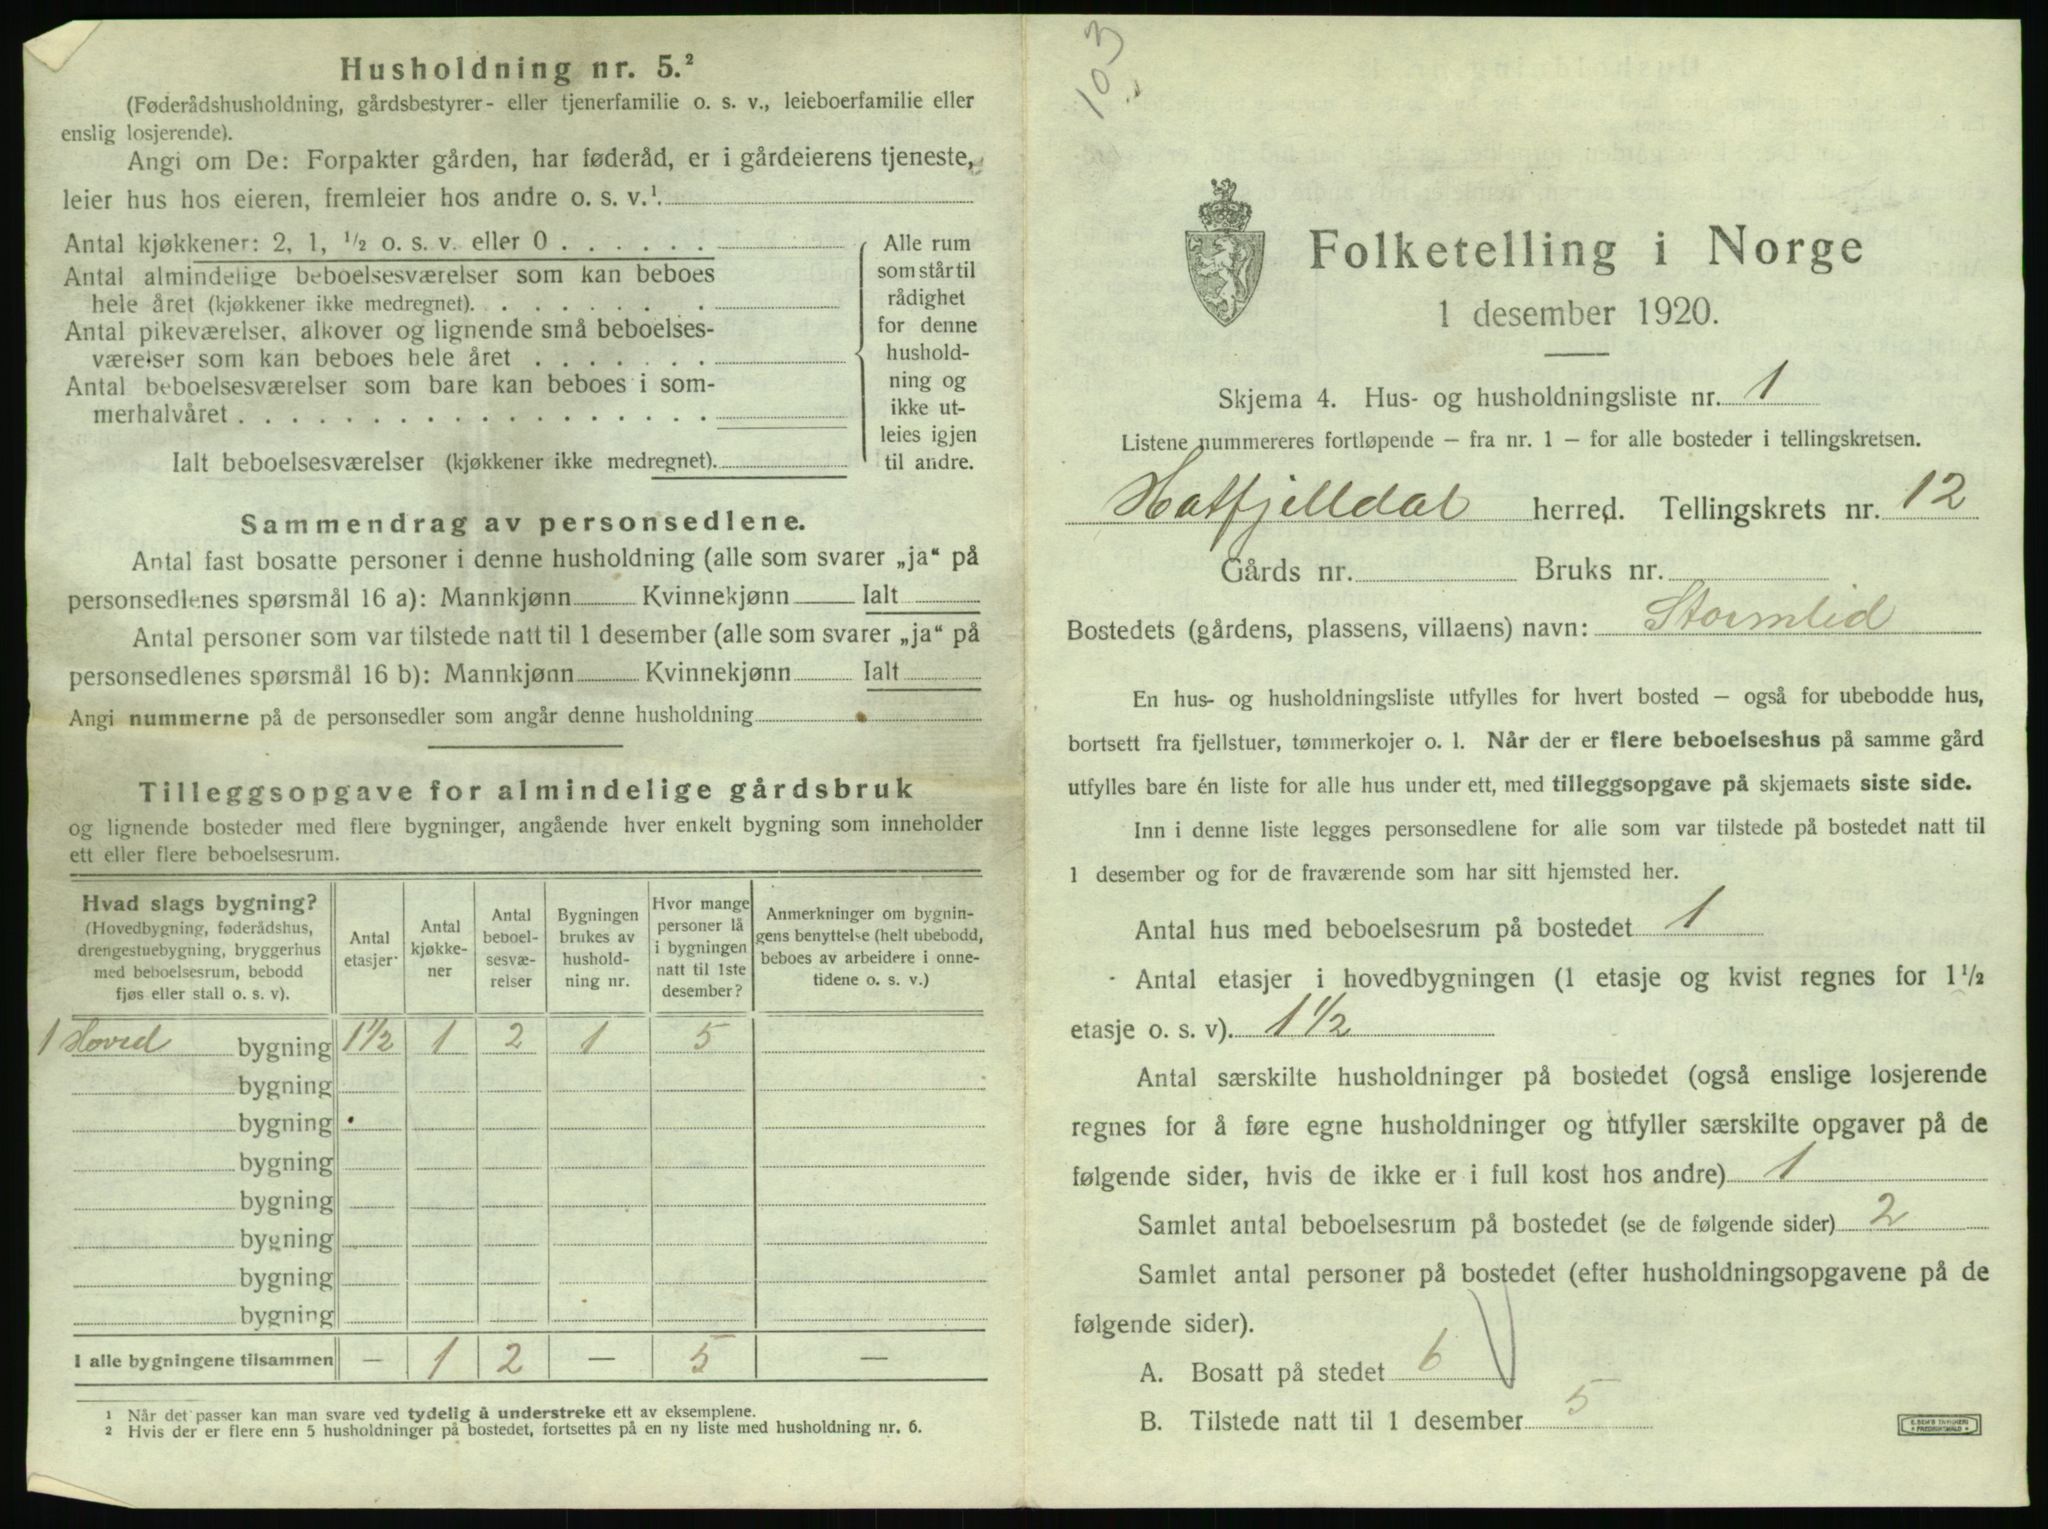 Husholdning nr. 5.²
(Føderådshusholdning, gårdsbestyrer- eller tjenerfamilie o. s. v., leieboerfamilie eller
enslig losjerende).
Angi om De: Forpakter gården, har føderåd, er i gårdeierens tjeneste,
leier hus hos eieren, fremleier hos andre o. s. v.¹
Antal kjøkkener: 2, 1, ½ o. s. v. eller 0 . . . . . .
Antal almindelige beboelsesværelser som kan beboes
hele året (kjøkkener ikke medregnet). . . . . . . .
Antal pikeværelser, alkover og lignende små beboelses-
værelser som kan beboes hele året . . . . . . .
Antal beboelsesværelser som bare kan beboes i som-
merhalvåret . . . . . . . . . . . . . . . . . .
Ialt beboelsesværelser (kjøkkener ikke medregnet).
Alle rum
som står til
rådighet
for denne
hushold-
ning og
ikke ut-
leies igjen
til andre.
Sammendrag av personsedlene.
Antal fast bosatte personer i denne husholdning (alle som svarer „ja“ på
personsedlenes spørsmål 16 a): Mannkjønn Kvinnekjønn Ialt
Antal personer som var tilstede natt til 1 desember (alle som svarer „ja“ på
personsedlenes spørsmål 16 b): Mannkjønn Kvinnekjønn Ialt
Angi nummerne på de personsedler som angår denne husholdning
Tilleggsopgave for almindelige gårdsbruk
og lignende bosteder med flere bygninger, angående hver enkelt bygning som inneholder
ett eller flere beboelsesrum.
Hvad slags bygning?
(Hovedbygning, føderådshus,
drengestuebygning, bryggerhus
med beboelsesrum, bebodd
fjøs eller stall o. s. v).
Antal
etasjer
Antal
kjøkke-
ner
Antal
beboel-
sesvæ-
relser
Bygningen
brukes av
hushold-
ning nr.
Hvor mange
personer lå
i bygningen
natt til 1ste
desember?
Anmerkninger om bygnin-
gens benyttelse (helt ubebodd,
beboes av arbeidere i onne-
tidene o. s. v.)
1 Hoved bygning 1½ 1 2 1 5
bygning
bygning
bygning
bygning
bygning
bygning
bygning
I alle bygningene tilsammen — 1 2 — 5 —
¹ Når det passer kan man svare ved tydelig å understreke ett av eksemplene.
² Hvis der er flere enn 5 husholdninger på bostedet, fortsettes på en ny liste med husholdning nr. 6.
103
Folketelling i Norge
1 desember 1920.
Skjema 4. Hus- og husholdningsliste nr. 1
Listene nummereres fortløpende — fra nr. 1 — for alle bosteder i tellingskretsen.
Hatfjelldal herred. Tellingskrets nr. 12
Gårds nr. Bruks nr.
Bostedets (gårdens, plassens, villaens) navn: Stormlid
En hus- og husholdningsliste utfylles for hvert bosted — også for ubebodde hus,
bortsett fra fjellstuer, tømmerkojer o. l. Når der er flere beboelseshus på samme gård
utfylles bare én liste for alle hus under ett, med tilleggsopgave på skjemaets siste side.
Inn i denne liste legges personsedlene for alle som var tilstede på bostedet natt til
1 desember og for de fraværende som har sitt hjemsted her.
Antal hus med beboelsesrum på bostedet 1
Antal etasjer i hovedbygningen (1 etasje og kvist regnes for 1½
etasje o. s. v). 1½
Antal særskilte husholdninger på bostedet (også enslige losjerende
regnes for å føre egne husholdninger og utfyller særskilte opgaver på de
følgende sider, hvis de ikke er i full kost hos andre) 1
Samlet antal beboelsesrum på bostedet (se de følgende sider) 2
Samlet antal personer på bostedet (efter husholdningsopgavene på de
følgende sider).
A. Bosatt på stedet 6
B. Tilstede natt til 1 desember 5